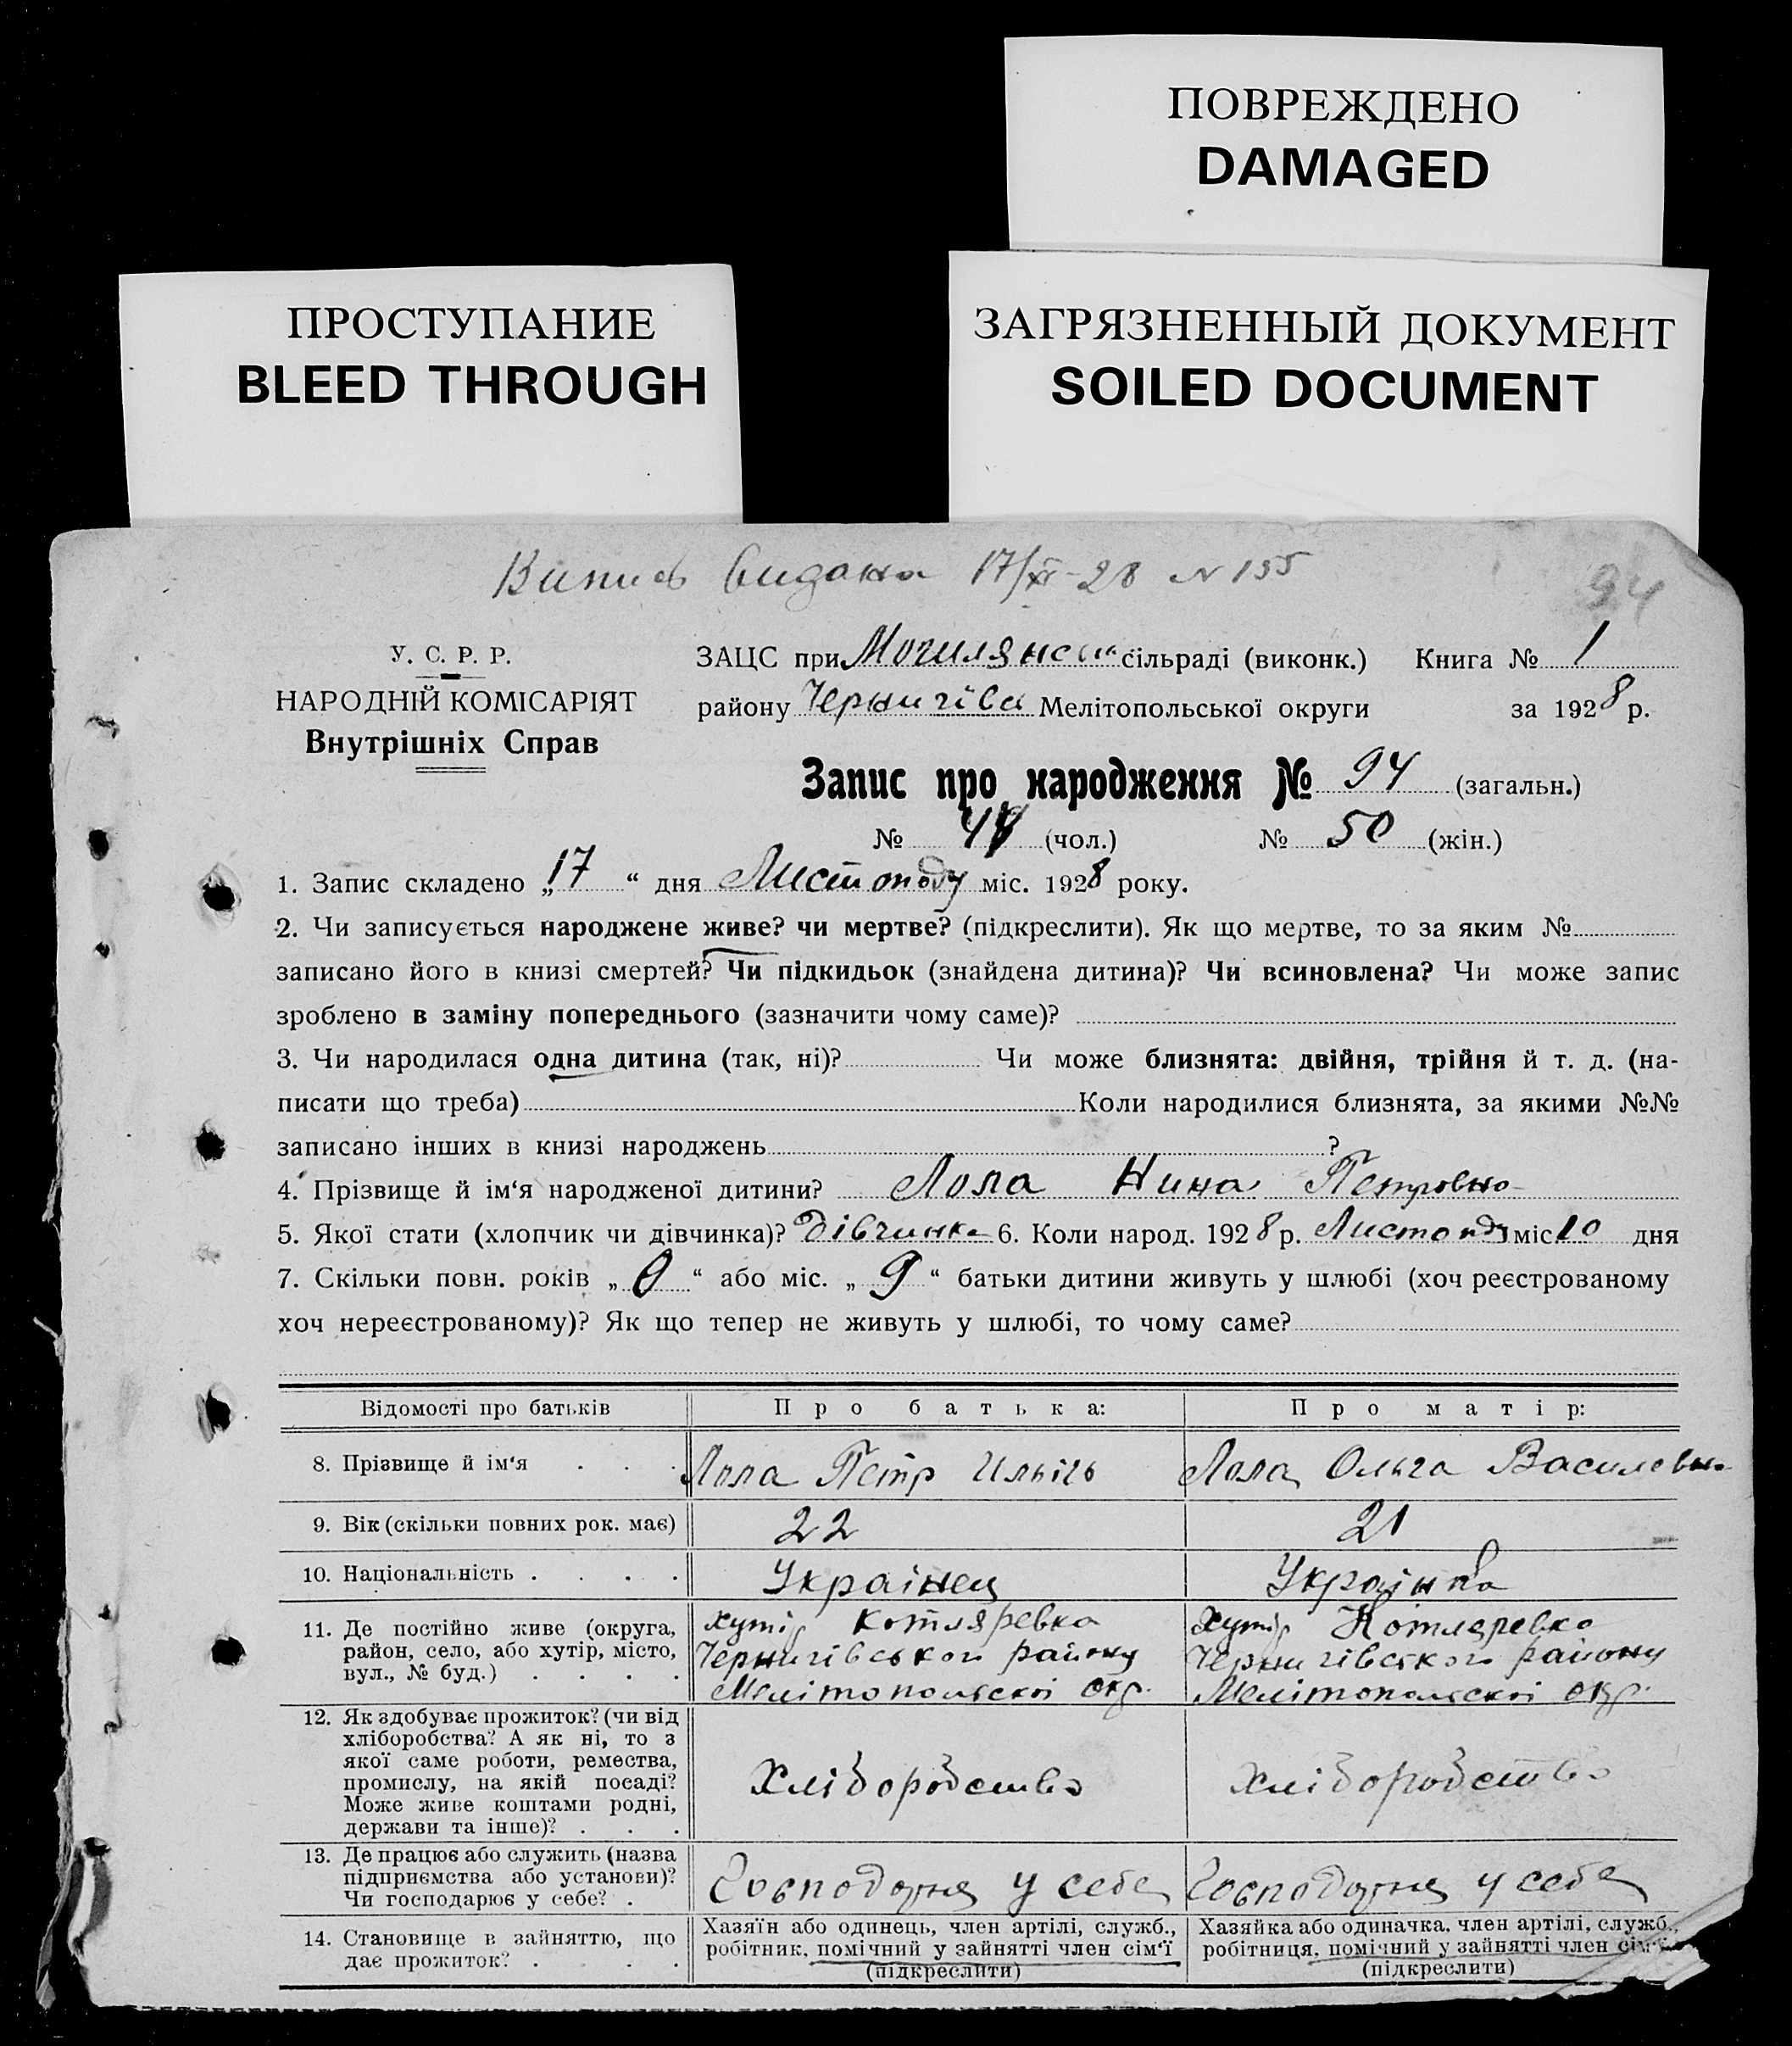 ПОВРЕЖДЕНО
DAMAGED
ПРОСТУПАНИЕ
BLEED THROUGH
ЗАГРЯЗНЕННЫЙ ДОКУМЕНТ
SOILED DOCUMENT
Випись видана 17/XI-28 N 155
94
У. С. Р. Р.
НАРОДНІЙ КОМІСАРІЯТ
Внутрішніх Справ
ЗАЦС при сільраді (виконк.) Книга № 1
району Чернигівск Мелітопольської округи за 1928 р.
Запис про народження № 94 (загальн.)
№ 44 (чол.) № 50 (жін.)
1. Запис складено „17“ дня Листопаду міс. 1928 року.
2. Чи записується народжене живе? чи мертве? (підкреслити). Як що мертве, то за яким №
записано його в книзі смертей? Чи підкидьок (знайдена дитина)? Чи всиновлена? Чи може запис
зроблено в заміну попереднього (зазначити чому саме)?
3. Чи народилася одна дитина (так, ні)? Чи може близнята: двійня, трійня й т. д. (на-
писати що треба) Коли народилися близнята, за якими №№
записано інших в книзі народжень ?
4. Прізвище й ім‘я народженої дитини? Лола Нина Петровна
5. Якої стати (хлопчик чи дівчинка)? дівчинка 6. Коли народ. 1928 р. Листопаду міс 10 дня
7. Скільки повн. років „0“ або міс. „9“ батьки дитини живуть у шлюбі (хоч реєстрованому
хоч нереєстрованому)? Як що тепер не живуть у шлюбі, то чому саме?
Відомості про батьків Про батька: Про матір:
8. Прізвище й ім‘я Лола Петр Ильічь Лола Ольга Василевна
9. Вік (скільки повних рок. має) 22 21
10. Національність Українец Українка
11. Де постійно живе (округа, хутір Котляревка Хутір Котляревка
район, село, або хутір, місто, Чернигівського району Чернигівського району
вул., № буд.) Мелітопольскої окр. Мелітопольскої окр.
12. Як здобуває прожиток? (чи від
хліборобства? А як ні, то з
якої саме роботи, ремества,
промислу, на якій посаді? Хліборобство Хліборобство
Може живе коштами родні,
держави та інше)?
13. Де працює або служить (назва
підприємства або установи)?
Чи господарює у себе? у себе у себе
14. Становище в зайняттю, що
дає прожиток?
Хазяїн або одинець, член артілі, служб.,
робітник, помічний у зайнятті член сім‘ї
(підкреслити)
Хазяйка або одиначка, член артілі, служб.,
робітниця, помічний у зайнятті член сім‘ї
(підкреслити)